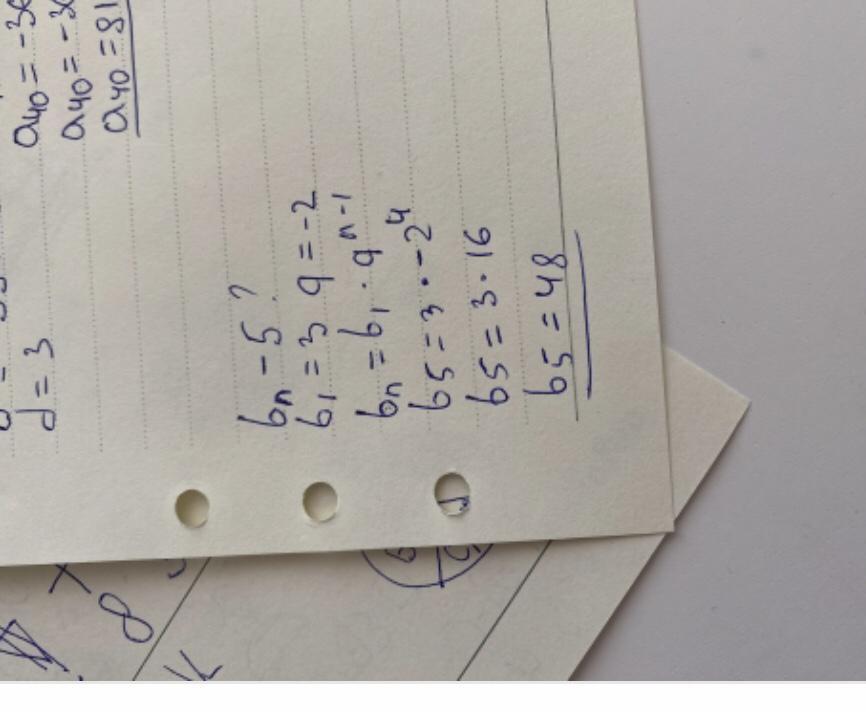 a₄₀ = -36
a₄₀ = -36
a₄₀ = 81
d = 3
bₙ - 5 ?
b₁ = 3 q = -2
bₙ = b₁ · qⁿ⁻¹
b5 = 3 · -2⁴
b5 = 3 · 16
b5 = 48
8
K